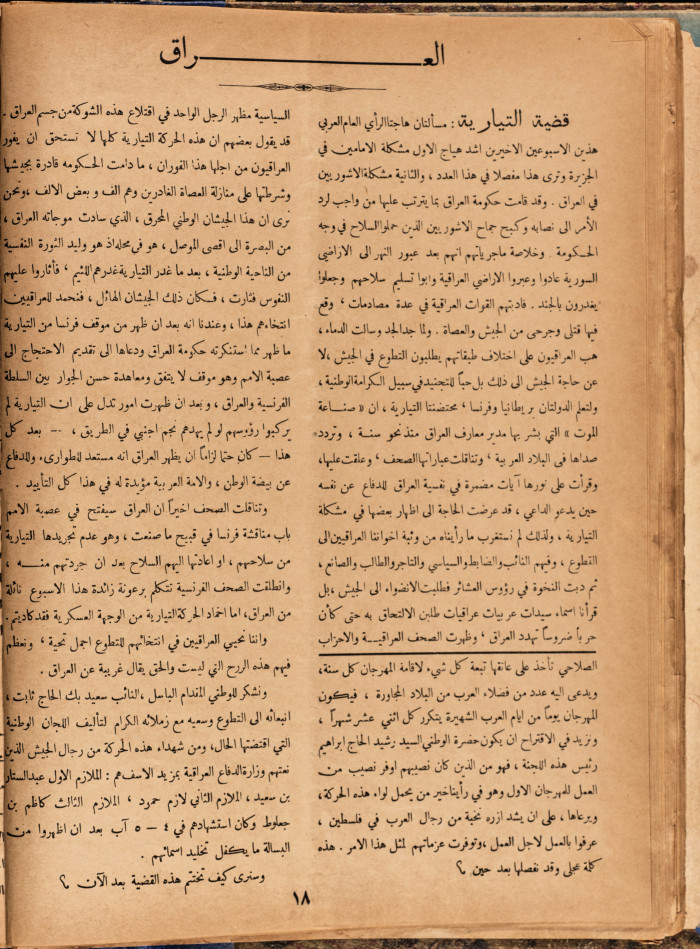 العـــــــــراق
قضية التيارية : مسألتان هاجتا الرأي العام العربي
هذين الاسبوعين الاخيرين اشد هياج الاول مشكلة الامامين في
الجزيرة وترى هذا مفصلا في هذا العدد ، والثانية مشكلة الاشوريين
في العراق . وقد قامت حكومة العراق بما يترتب عليها من واجب لرد
الأمر الى نصابه وكبح جماح الاشوريين الذين حملوا السلاح في وجه
الحكومة . وخلاصة ماجرياتهم انهم بعد عبور النهر الى الاراضي
السورية عادوا وعبروا الاراضي العراقية وابوا تسليم سلاحهم وجعلوا
يغدرون بالجند . فادبتهم القوات العراقية في عدة مصادمات ، وقع
فيها قتلى وجرحى من الجيش والعصاة . ولما جد الجد وسالت الدماء ،
هب العراقيون على اختلاف طبقاتهم يطلبون التطوع في الجيش ، لا
عن حاجة الجيش الى ذلك بل حباً للتجنيد في سبيل الكرامة الوطنية ،
ولتعلم الدولتان بريطانيا وفرنسا ، محتضنتا التيارية ، ان « صناعة
الموت » التي بشر بها مدير معارف العراق منذ نحو سنة ، وتردد
صداها في البلاد العربية ، وتناقلت عباراتها الصحف ، وعلقت عليها،
وقرأت على نورها آيات مضمرة في نفسية العراق للدفاع عن نفسه
حين يدعو الداعي ، قد عرضت الحاجة الى اظهار بعضها في مشكلة
التيارية ، ولذلك لم نستغرب ما رأيناه من وثبة اخواننا العراقيين الى
التطوع ، وفيهم النائب والضابط والسياسي والتاجر والطالب والصانع ،
ثم دبت النخوة في رؤوس العشائر فطلبت الانضواء الى الجيش ، بل
قرأنا اسماء سيدات عربيات عراقيات طلبن الالتحاق به حتى كأن
حرباً ضروساً تهدد العراق ، وظهرت الصحف العراقيــة والاحزاب
السياسية مظهر الرجل الواحد في اقتلاع هذه الشوكة من جسم العراق .
قد يقول بعضهم ان هذه الحركة التيارية كلها لا تستحق ان يفور
العراقيون من اجلها هذا الفوران ، ما دامت الحكومه قادرة بجيشها
وشرطتها على منازلة العصاة الغادرين وهم الف و بعض الالف ، ونحن
نرى ان هذا الجيشان الوطني المحرق ، الذي سادت موجاته العراق ،
من البصرة الى اقصى الموصل ، هو في محله اذ هو وليد الثورة النفسية
من الناحية الوطنية ، بعد ما غدر التيارية غدرهم اللئيم ، فأثاروا عليهم
النفوس فثارت ، فكان ذلك الجيشان الهائل ، فنحمد للعراقيين
انتخاءهم هذا ، وعندنا انه بعد ان ظهر من موقف فرنسا من التيارية
ما ظهر مما استنكرته حكومة العراق ودعاها الى تقديم الاحتجاج الى
عصبة الامم وهو موقف لا يتفق ومعاهدة حسن الجوار بين السلطة
الفرنسية والعراق ، وبعد ان ظهرت امور تدل على ان التيارية لم
يركبوا رؤوسهم لو لم يهدهم نجم اجنبي في الطريق ، -- بعد كل
هذا — كان حتما لزاماً ان يظهر العراق انه مستعد للطوارىء وللدفاع
عن بيضة الوطن ، والامة العربية مؤيدة له في هذا كل التأييد .
وتناقلت الصحف اخيراً ان العراق سيفتح في عصبة الامم
باب مناقشة فرنسا في قبيح ما صنعت ، وهو عدم تجريدها التيارية
من سلاحهم ، او اعادتها اليهم السلاح بعد ان جردتهم منــه ،
وانطلقت الصحف الفرنسية تتكلم برعونة زائدة هذا الاسبوع نائلة
من العراق، اما اخماد الحركة التيارية من الوجهة العسكرية فقد كاد يتم.
واننا نحيي العراقيين في انتخائهم للتطوع اجمل تحية ، ونعظم
فيهم هذه الروح التي ليست والحق يقال غريبة عن العراق .
ونشكر للوطني المقدام الباسل ، النائب سعيد بك الحاج ثابت ،
انبعاثه الى التطوع وسعيه مع زملائه الكرام لتأليف اللجان الوطنية
التي اقتضتها الحال، ومن شهداء هذه الحركة من رجال الجيش الذين
نعتهم وزارة الدفاع العراقية بمزيد الاسف هم : الملازم الاول عبدالستار
بن سعيد ، الملازم الثاني لازم حمود ، الملازم الثالث كاظم بن
جعلوط وكان استشهادهم في ٤ — ٥ آب بعد ان اظهروا من
البسالة ما يكفل تخليد اسمائهم .
وسنرى كيف تختتم هذه القضية بعد الآن م؟
الصلاحي تأخذ على عاتقها تبعة كل شيء لاقامة المهرجان كل سنة،
ويدعى اليه عدد من فضلاء العرب من البلاد المجاورة ، فيكون
المهرجان يوماً من ايام العرب الشهيرة يتكرر كل اثني عشر شهراً ،
ونزيد في الاقتراح ان يكون حضرة الوطني السيد رشيد الحاج ابراهيم
رئيس هذه اللجنة ، فهو من الذين كان نصيبهم اوفر نصيب من
العمل للمهرجان الاول وهو في رأينا خير من يحمل لواء هذه الحركة،
ويرعاها ، على ان يشد ازره نخبة من رجال العرب في فلسطين ،
عرفوا بالعمل لاجل العمل ، وتوفرت عزماتهم لمثل هذا الامر . هذه
كلمة عجلى وقد نفصلها بعد حين م؟
١٨